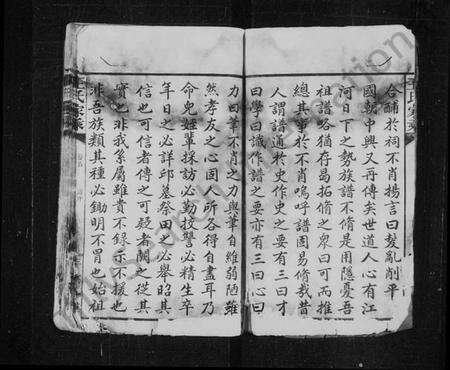 合酺於祠不肖揚言曰髮亂削平
國朝中興又再傳矣世道人心有江
河日下之勢族譜不脩是用隱憂吾
祖譜咯猶存曷拓脩之眾曰可而推
總其事於不肖嗚呼譜固易脩哉昔
人謂譜通於史作史之要有三曰才
曰學曰識作譜之要亦有三曰心曰
力曰筆不肖之力與筆自維弱陋雖
然孝友之心固人所各得自盡耳乃
命免姪軰採訪必勤挍讐必精生卒
年日之必詳邱墓祭田之必舉昭其
信也可信者傳之可疑者闕之從其
實也非我系屬雖貴不録示不援也
非吾族類其種必鋤明不冒也始祖
氏家乘